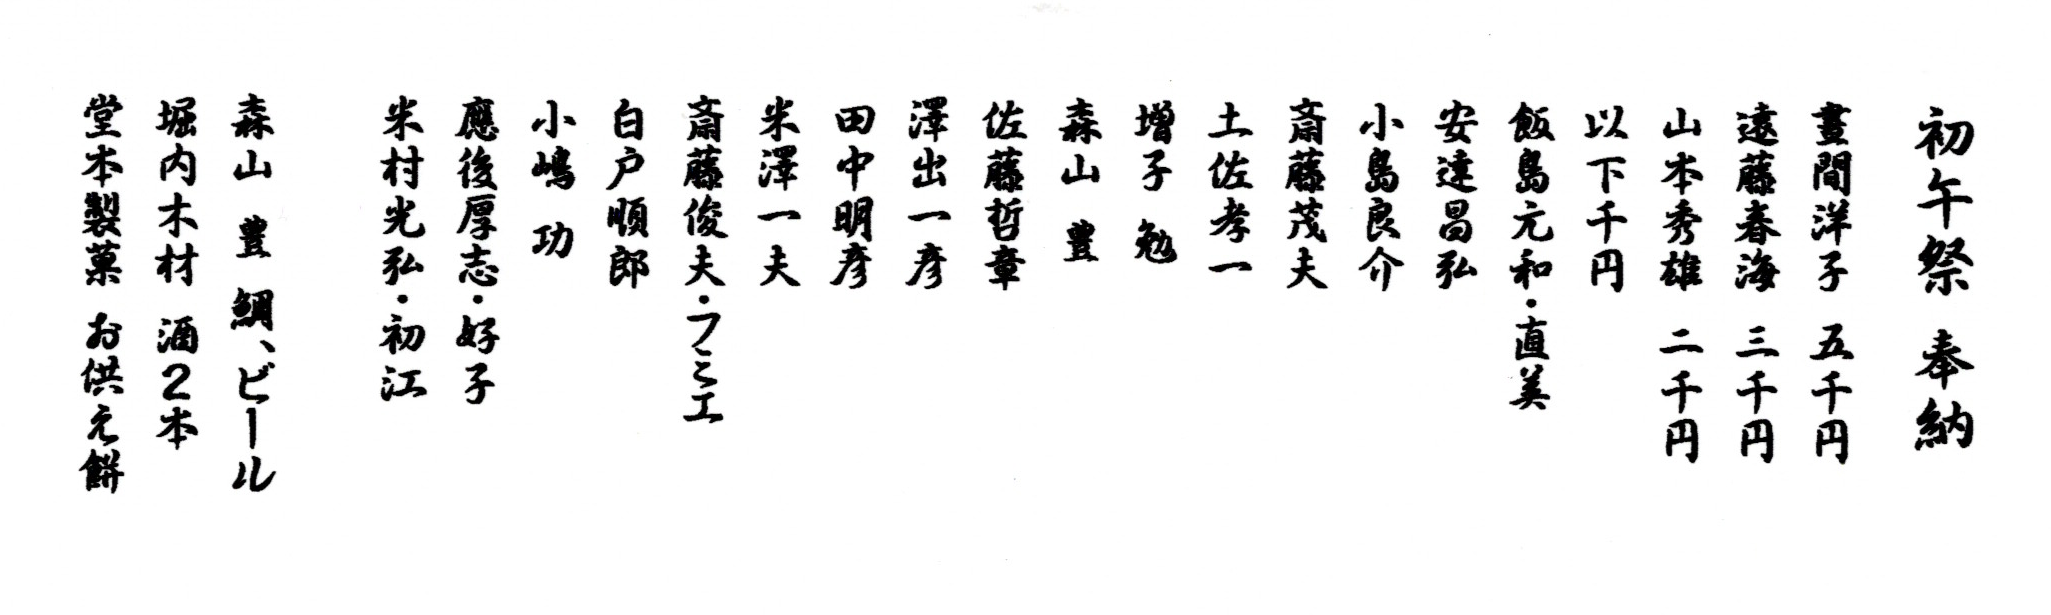 初午祭 奉納
晝間洋子 五千円
遠藤春海 三千円
山本秀雄 二千円
以下千円
飯島元和・直美
安達昌弘
小島良介
斎藤茂夫
土佐孝一
増子 勉
森山 豊
佐藤哲章
澤出一彦
田中明彦
米澤一夫
斎藤俊夫・フミエ
白戸順郎
小嶋 功
應後厚志・好子
米村光弘・初江
森山 豊 鯛、ビール
堀内木材 酒2本
堂本製菓 お供え餅